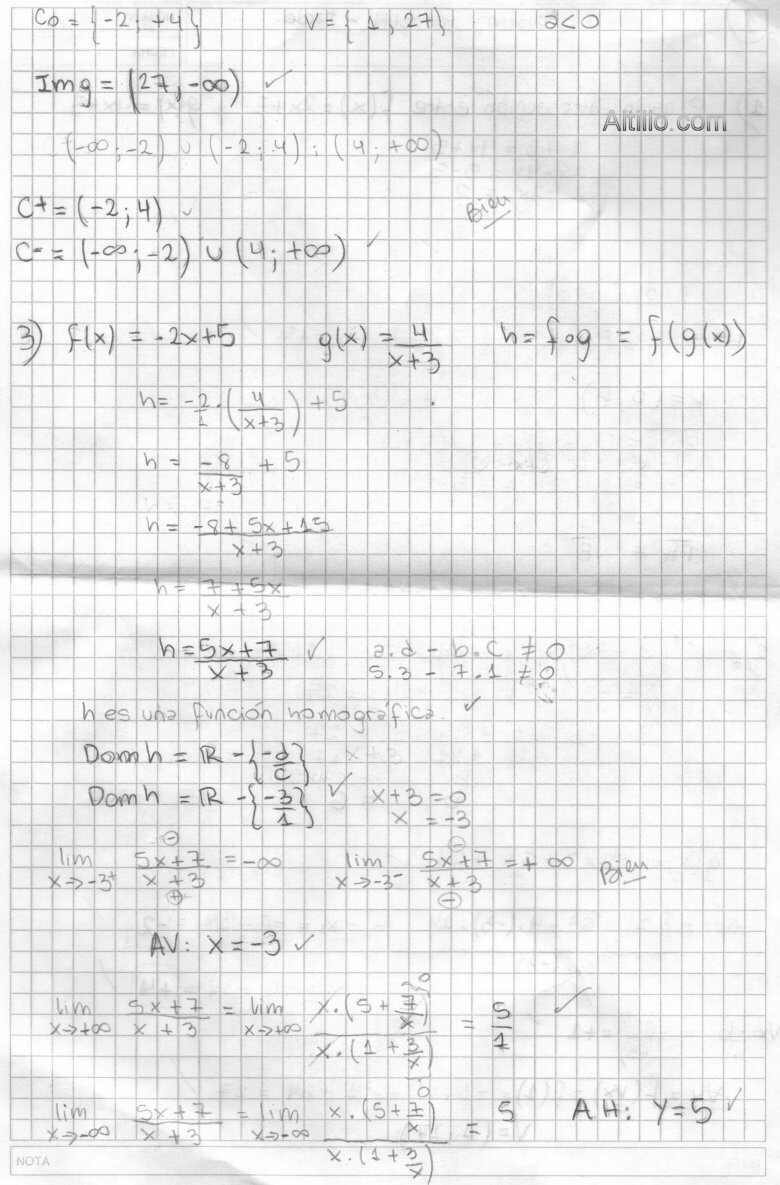 Co = {-2; +4}   V = {1, 27}   a<0
Im g = (27, -∞) ✓
Altillo.com
(-∞; -2) ∪ (-2; 4); (4; +∞)
C+ = (-2; 4) ✓   Bien
C- = (-∞; -2) ∪ (4; +∞) ✓
3) f(x) = -2x+5   g(x) = 4/(x+3)   h = fog = f(g(x))
h = -2/1 · (4/(x+3)) + 5
h = -8/(x+3) + 5
h = (-8 + 5x + 15)/(x+3)
h = (7 + 5x)/(x + 3)
h = (5x+7)/(x+3) ✓   a.d - b.c ≠ 0
5.3 - 7.1 ≠ 0
h es una función homográfica. ✓
Dom h = ℝ - {-d/c}
Dom h = ℝ - {-3/1} ✓   x+3 = 0
x = -3
lim x→-3⁺ (5x+7)/(x+3) = -∞   lim x→-3⁻ (5x+7)/(x+3) = +∞   Bien
AV: x = -3 ✓
lim x→+∞ (5x+7)/(x+3) = lim x→+∞ x.(5 + 7/x)/x.(1 + 3/x) = 5/1 ✓
lim x→-∞ (5x+7)/(x+3) = lim x→-∞ x.(5 + 7/x)/x.(1 + 3/x) = 5   AH: y=5 ✓
NOTA